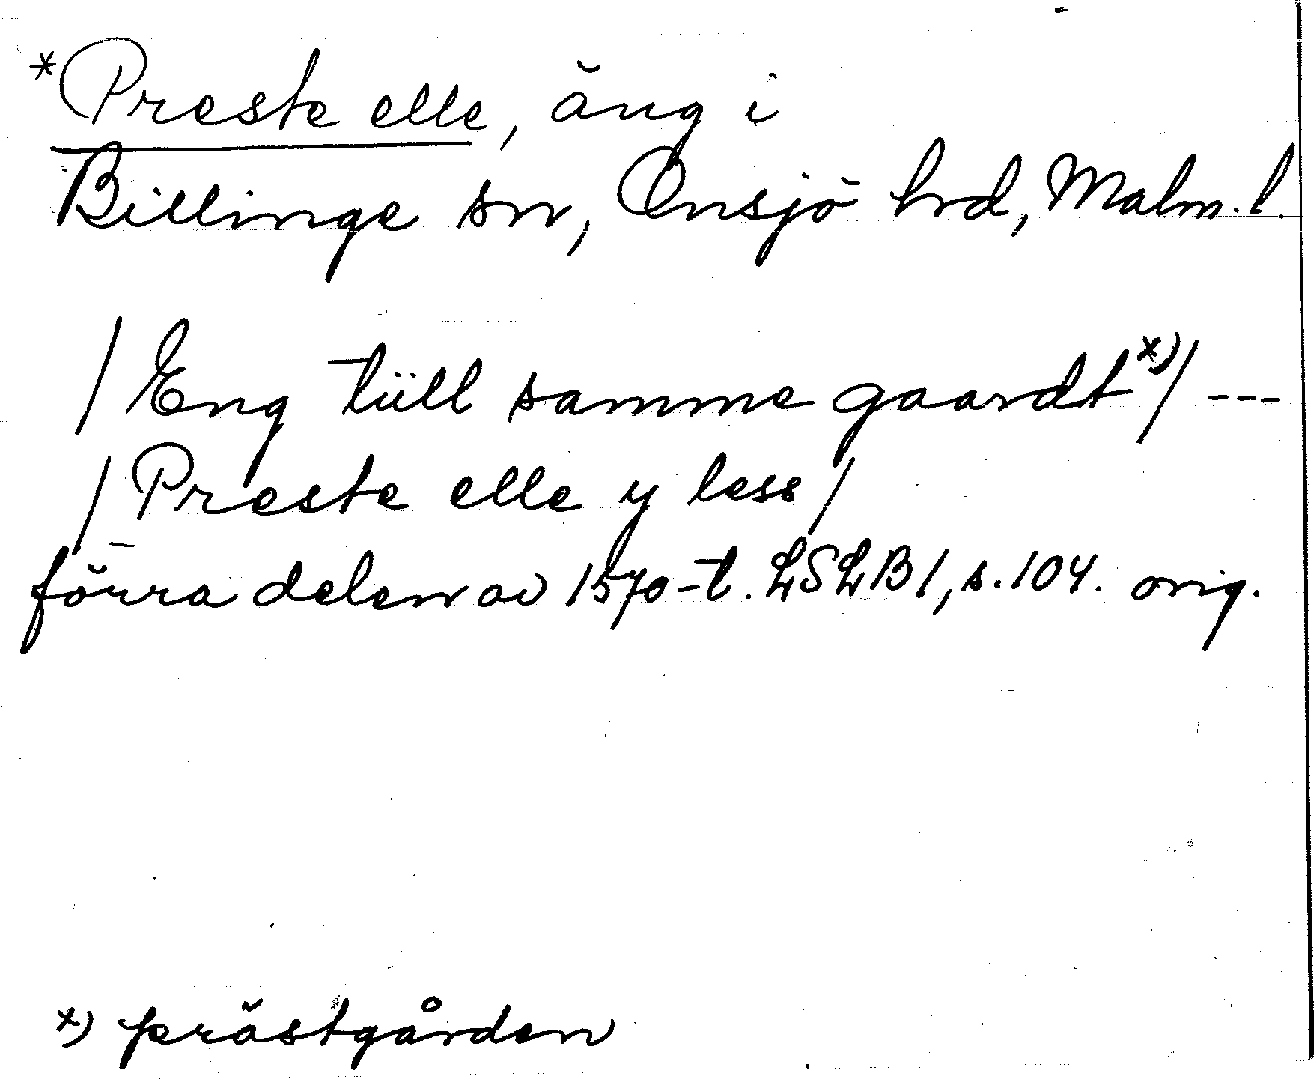 *Preste elle, äng i
Billinge sn, Onsjö hrd, Malm. l.
/Eng tüll samme gaardt x)/ ---
/Preste elle y less/
förra delen av 1570-t. LSLB1, s. 104. orig.
x) prästgården